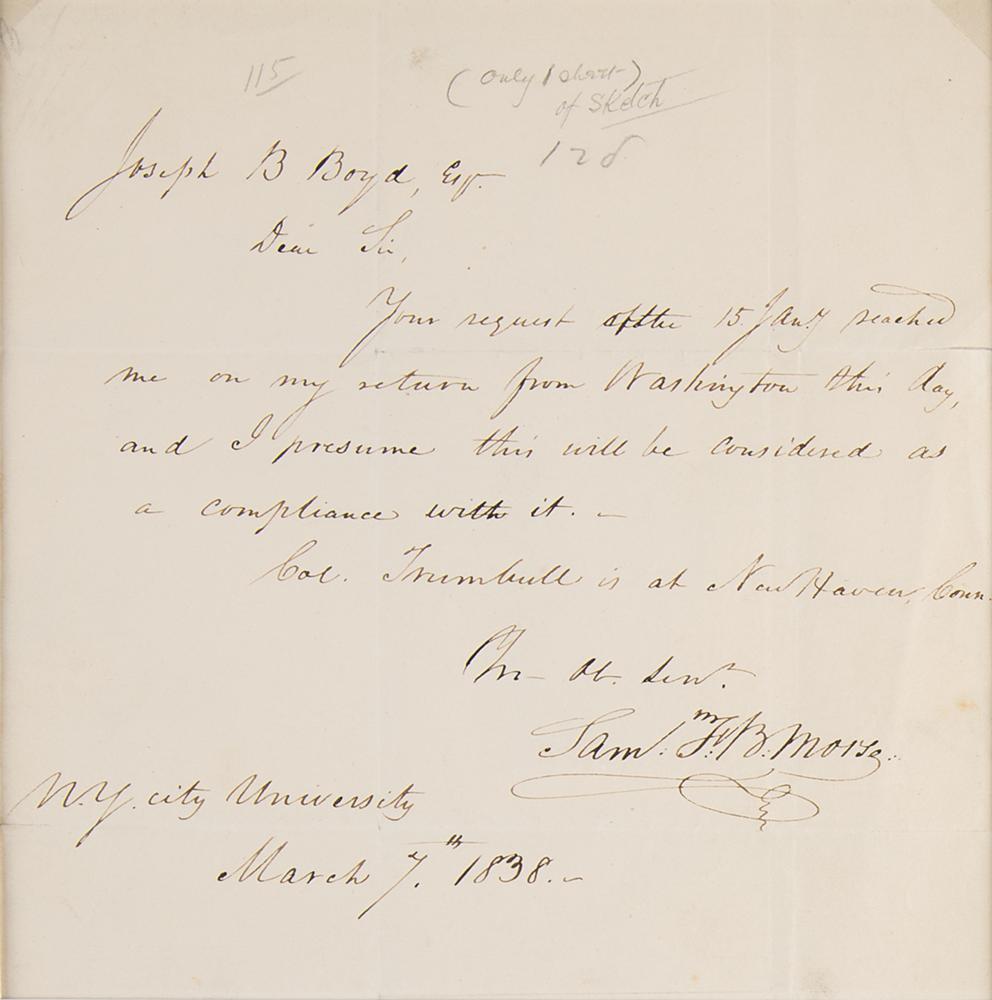 115
(only 1 sheet)
of Sketch
128
Joseph B Boyd, Esqr.
Dear Sir,
Your request of the 15 Jany reached
me on my return from Washington this day,
and I presume this will be considered as
a compliance with it. –
Col. Trumbull is at New Haven, Conn.
Yr Ob. Servt.
Saml. F. B. Morse.
N.Y. city University
March 7.th 1838. –